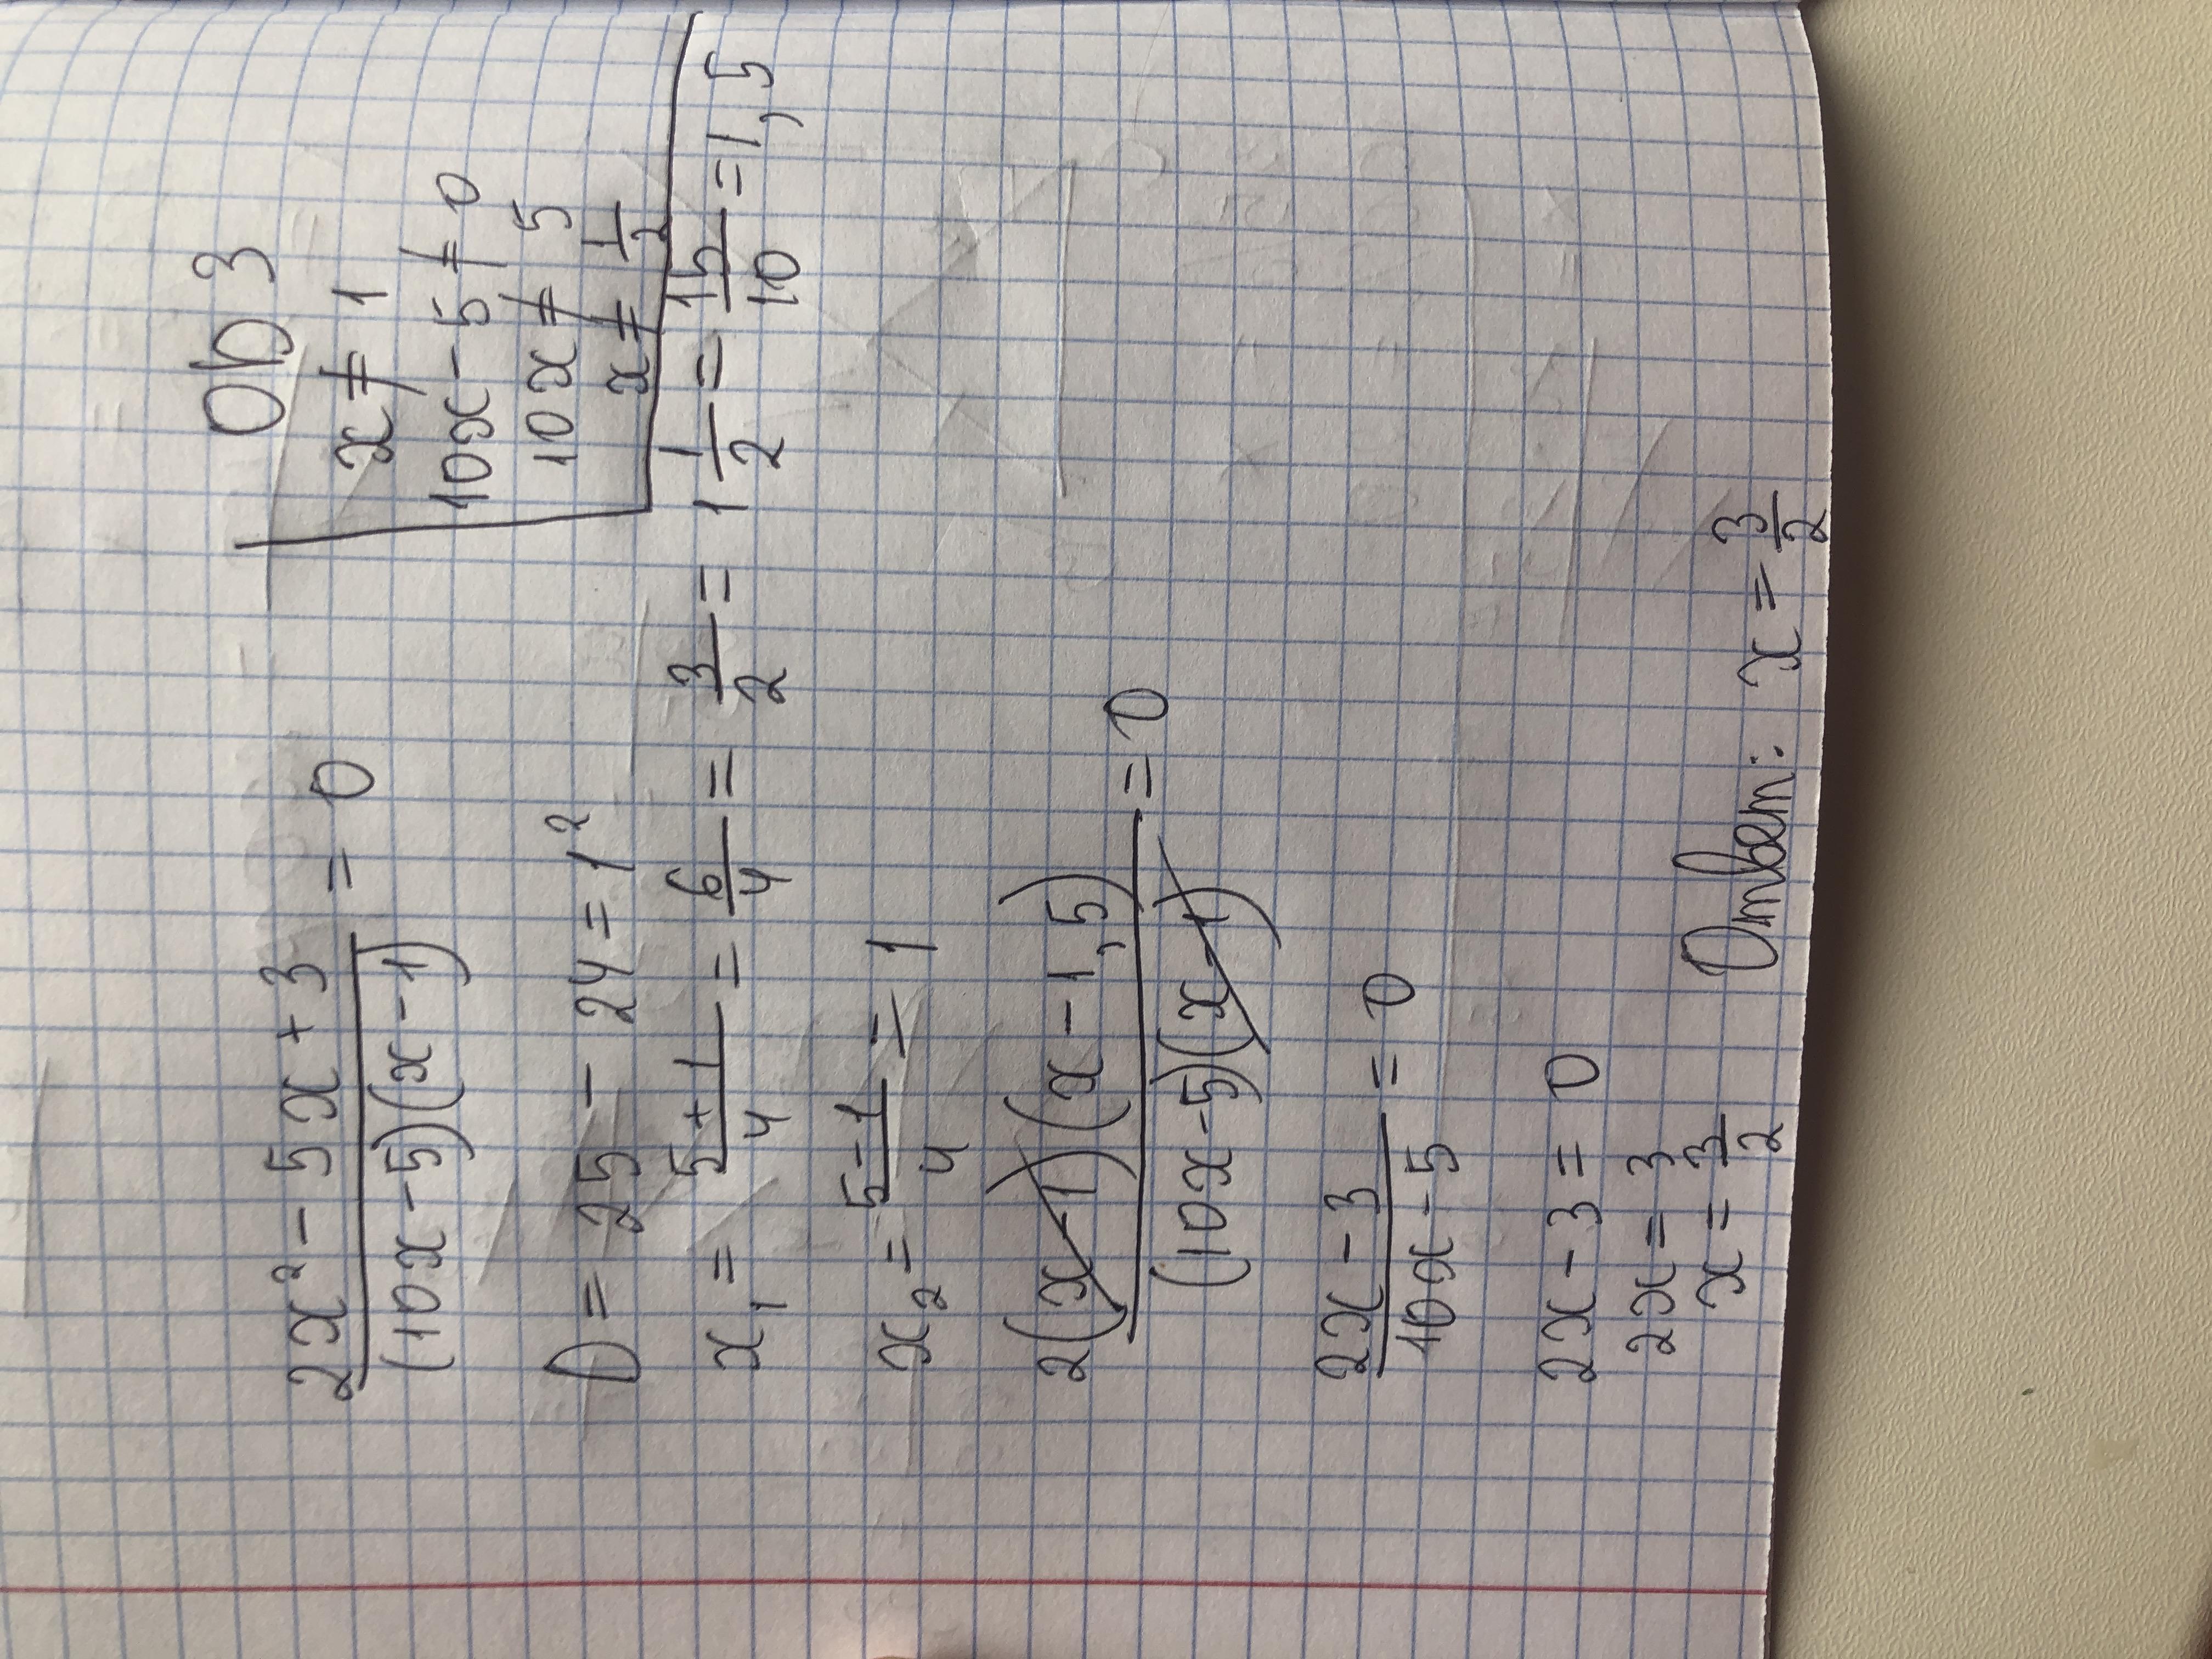 2x² - 5x + 3
———————————— = 0
(10x - 5)(x - 1)
ОДЗ
x ≠ 1
10x - 5 ≠ 0
10x ≠ 5
x ≠ 1/2
D = 25 - 24 = 1²
x₁ = (5+1)/4 = 6/4 = 3/2 = 1 1/2 = 15/10 = 1,5
x₂ = (5-1)/4 = 1
2(x-1)(x-1,5)
———————————— = 0
(10x-5)(x-1)
2x-3
———— = 0
10x-5
2x - 3 = 0
2x = 3
x = 3/2
Ответ: x = 3/2